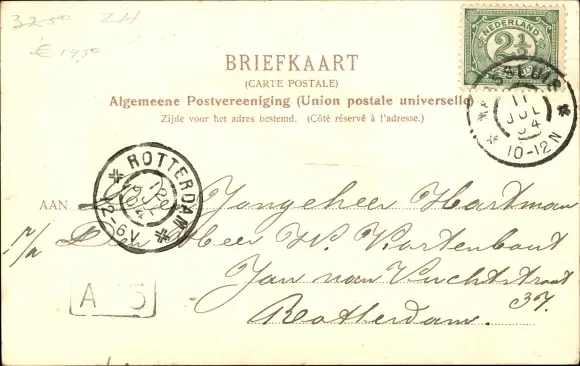 3250 ZH
€ 14,50
NEDERLAND
2½
BRIEFKAART
(CARTE POSTALE)
Algemeene Postvereeniging (Union postale universelle)
Zijde voor het adres bestemd. (Côté réservé à l'adresse.)
11
JUL
04
10-12N
ROTTERDAM
12
04
2-6V
AAN Jongeheer Hartman
p/a Den Heer W. Kortenbout
Jan van Vuchtstraat
37.
Rotterdam.
A 5